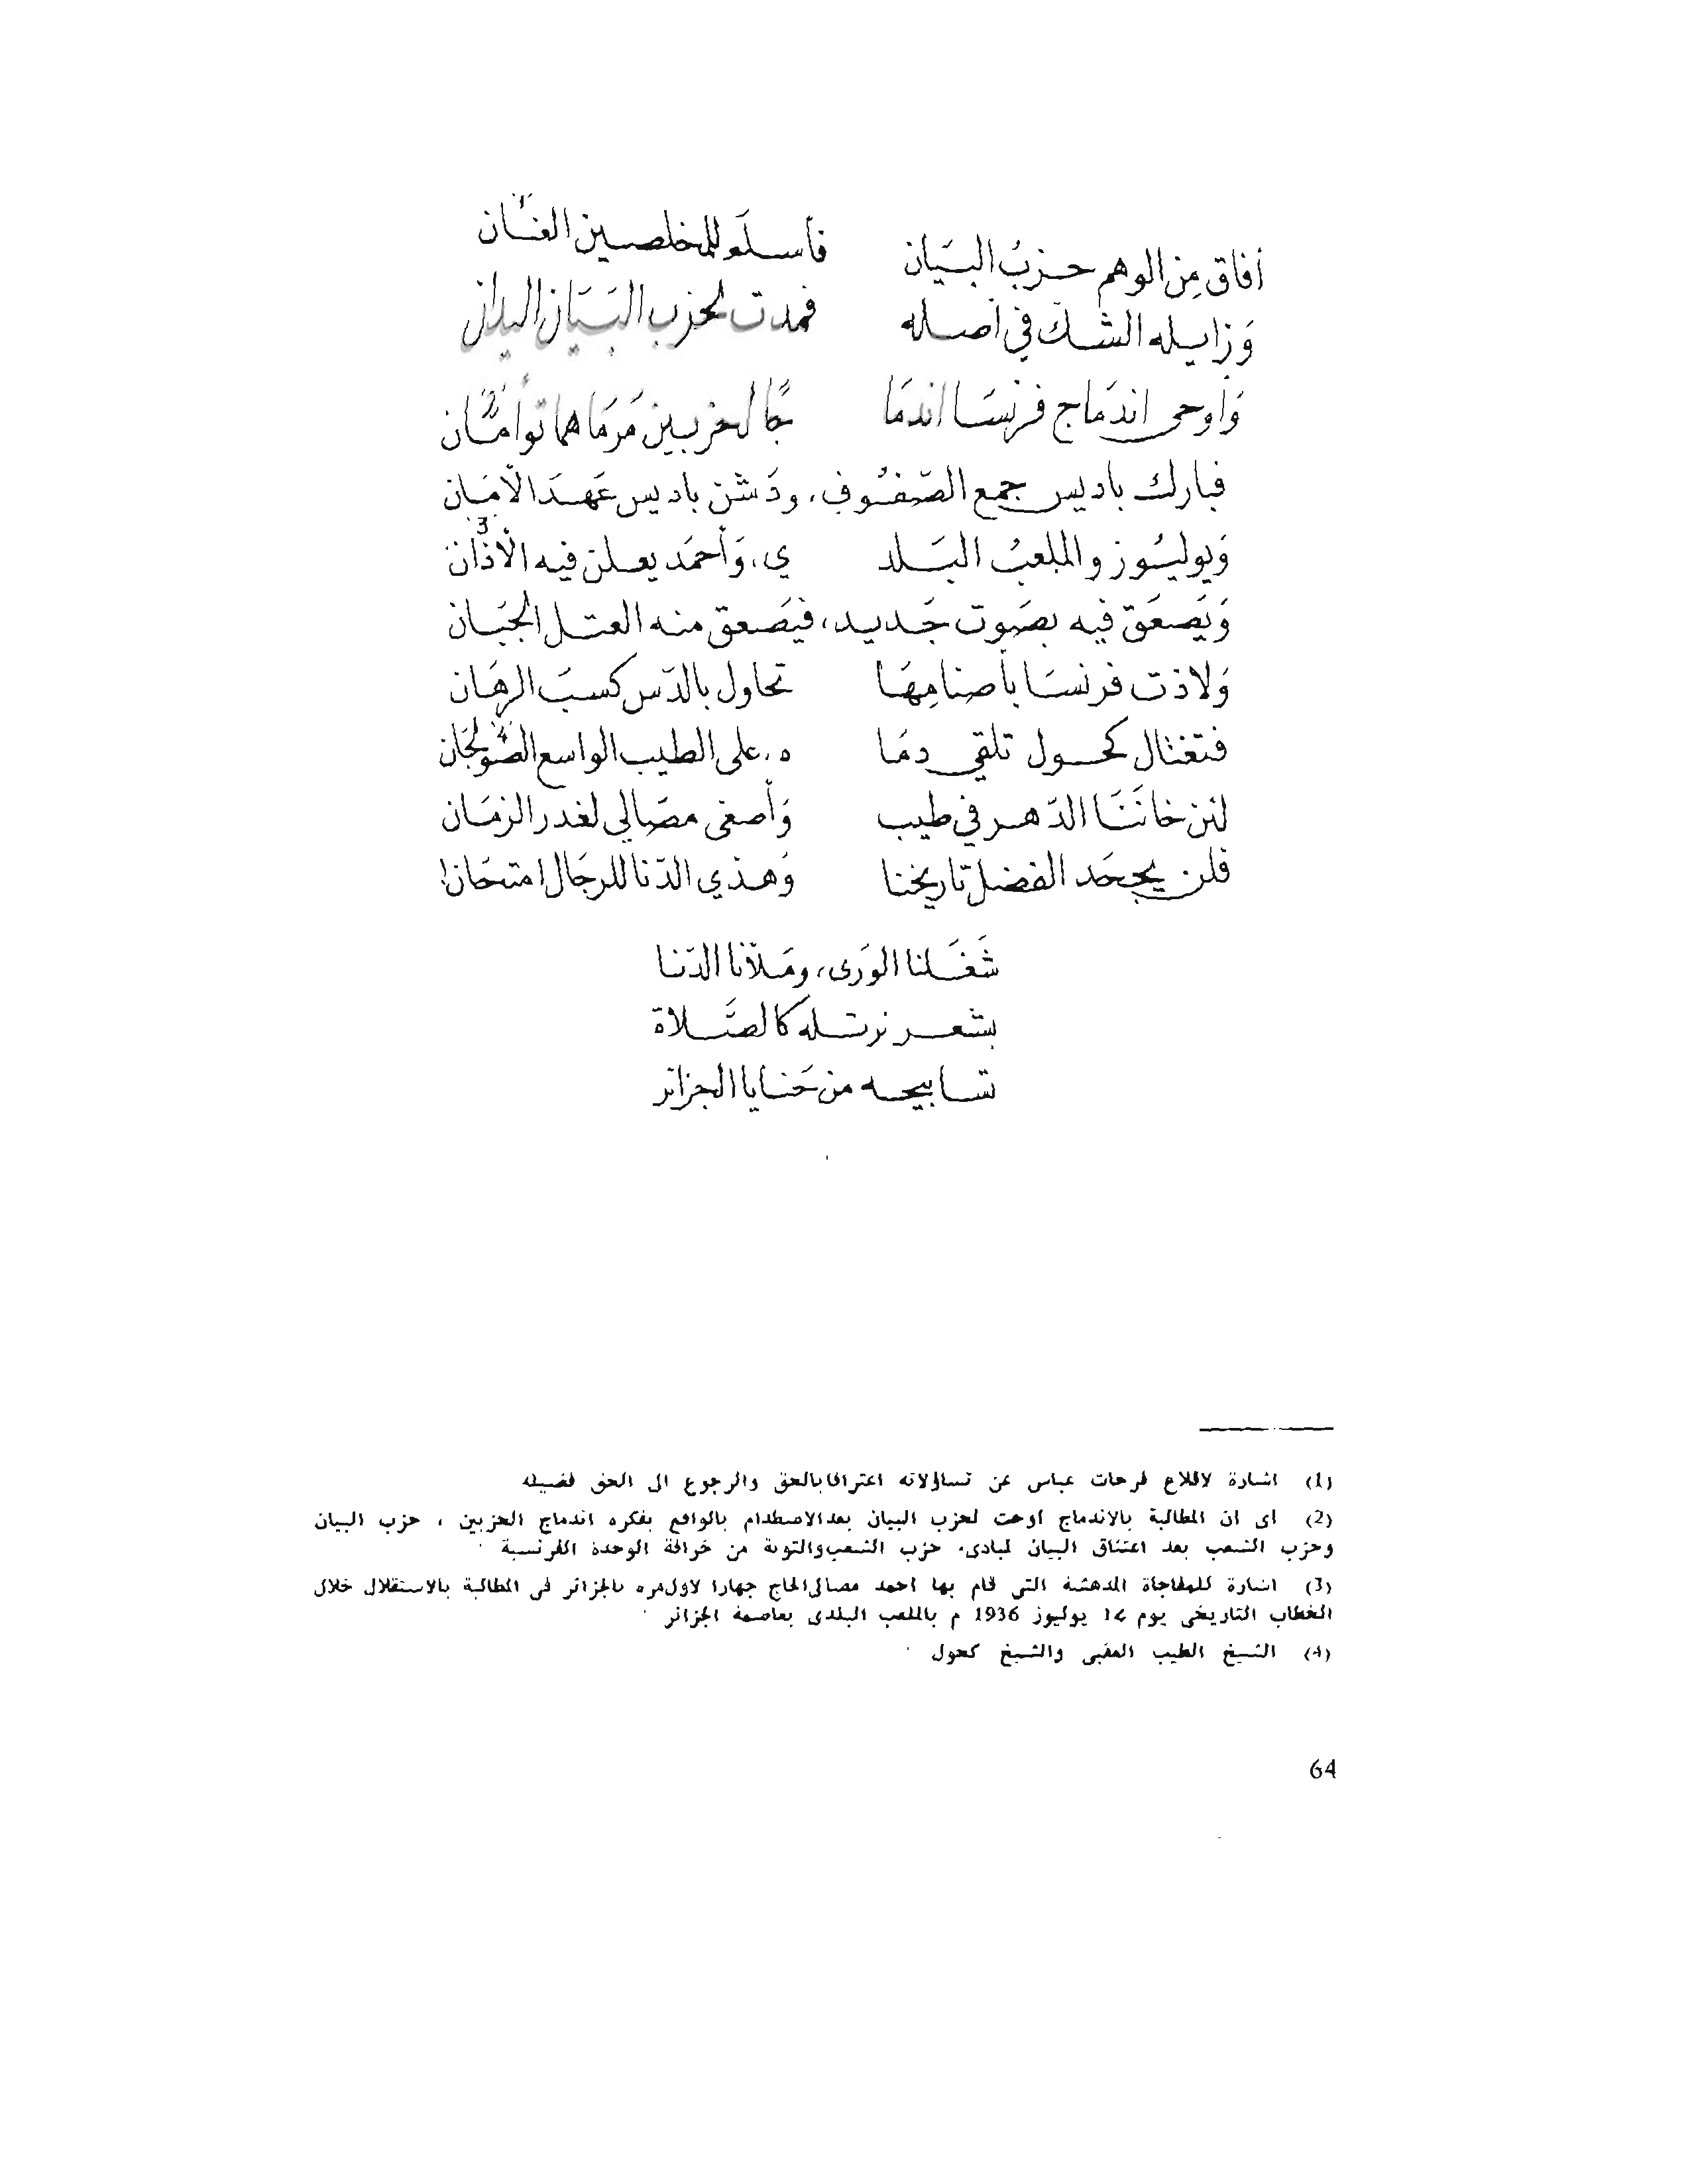 أفاق مِن الوهم حزبُ البيَان فأسلَم للمخلصين العنَان
وَزايله الشكّ في أصله فمدت لحزب البيَان اليدان
وَأوحى اندمَاج فرنسَا اندمَا جًا لحزبين مَرمَاهما توأمَان
فبارك باديس جمع الصّفُوف، ودَشّن باديس عَهدَ الأمَان
وَيوليُوز والملعبُ البَلد ي، وَأحمَد يعلن فيه الأذَان 3
وَيَصعَق فيه بصَوت جَديد، فيَصعق منه العتل الجبَان
وَلاذت فرنسَا بأصنامِهَا تحاول بالدّس كسبَ الرهَان
فتغتال كحول تلقي دمَا ه، على الطيب الواسع الصَّولجَان 4
لئن خانَنَا الدّهر في طيب وَأصغى مصَالي لغدر الزمَان
فلن يجحَد الفضل تاريخنا وَهذي الدّنا للرجَال امتحَان!
شَغَلنا الورَى، ومَلأنا الدّنا
بشعر نرتله كالصَّلاة
تسابيحه من حَنايا الجزائر
(1) اشارة لاقلاع فرحات عباس عن تساؤلاته اعترافا بالحق والرجوع الى الحق فضيلة
(2) اى ان المطالبة بالاندماج اوحت لحزب البيان بعد الاصطدام بالواقع بفكره اندماج الحزبين ، حزب البيان
وحزب الشعب بعد اعتناق البيان لمبادىء حزب الشعب والتوبة من خرافة الوحدة الفرنسية .
(3) اشارة للمفاجاة المدهشة التى قام بها احمد مصالى الحاج جهارا لاول مره بالجزائر فى المطالبة بالاستقلال خلال
الخطاب التاريخى يوم يوليوز 1936 م بالملعب البلدى بعاصمة الجزائر .
(4) الشيخ الطيب العقبى والشيخ كحول .
64